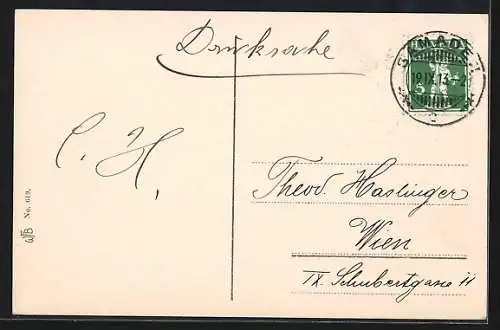 Drucksache
SAMADEN
19.IX.13.-2
5
C. H.
Theod. Haslinger
Wien
IX. Schubertgasse 11
No. 619.